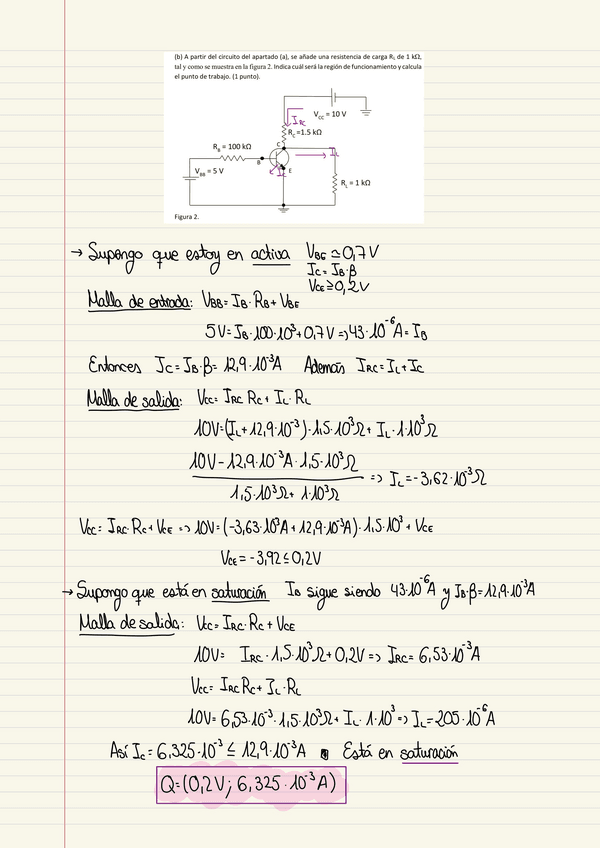 (b) A partir del circuito del apartado (a), se añade una resistencia de carga RL de 1 kΩ,
tal y como se muestra en la figura 2. Indica cuál será la región de funcionamiento y calcula
el punto de trabajo. (1 punto).
VCC = 10 V
IRC
RC=1.5 kΩ
C
RB = 100 kΩ
IL
B
E
IC
VBB = 5 V
RL = 1 kΩ
Figura 2.
→ Supongo que estoy en activa VBE ≃ 0,7V
IC = IB·β
VCE ≥ 0,2V
Malla de entrada: VBB = IB·RB + VBE
5V = IB·100·10³ + 0,7V => 43·10⁻⁶A = IB
Entonces IC = IB·β = 12,9·10⁻³A Además IRC = IL + IC
Malla de salida: VCC = IRC RC + IL·RL
10V = (IL + 12,9·10⁻³)·1,5·10³Ω + IL·1·10³Ω
10V - 12,9·10⁻³A·1,5·10³Ω
=> IL = -3,62·10⁻³Ω
1,5·10³Ω + 1·10³Ω
VCC = IRC·RC + VCE => 10V = (-3,63·10³A + 12,9·10⁻³A)·1,5·10³ + VCE
VCE = -3,92 ≤ 0,2V
→ Supongo que está en saturación IB sigue siendo 43·10⁻⁶A y IB·β = 12,9·10⁻³A
Malla de salida: VCC = IRC·RC + VCE
10V = IRC·1,5·10³Ω + 0,2V => IRC = 6,53·10⁻³A
VCC = IRC RC + IL·RL
10V = 6,53·10⁻³·1,5·10³Ω + IL·1·10³ => IL = 205·10⁻⁶A
Así IC = 6,325·10⁻³ ≤ 12,9·10⁻³A Está en saturación
Q = (0,2V; 6,325·10⁻³A)